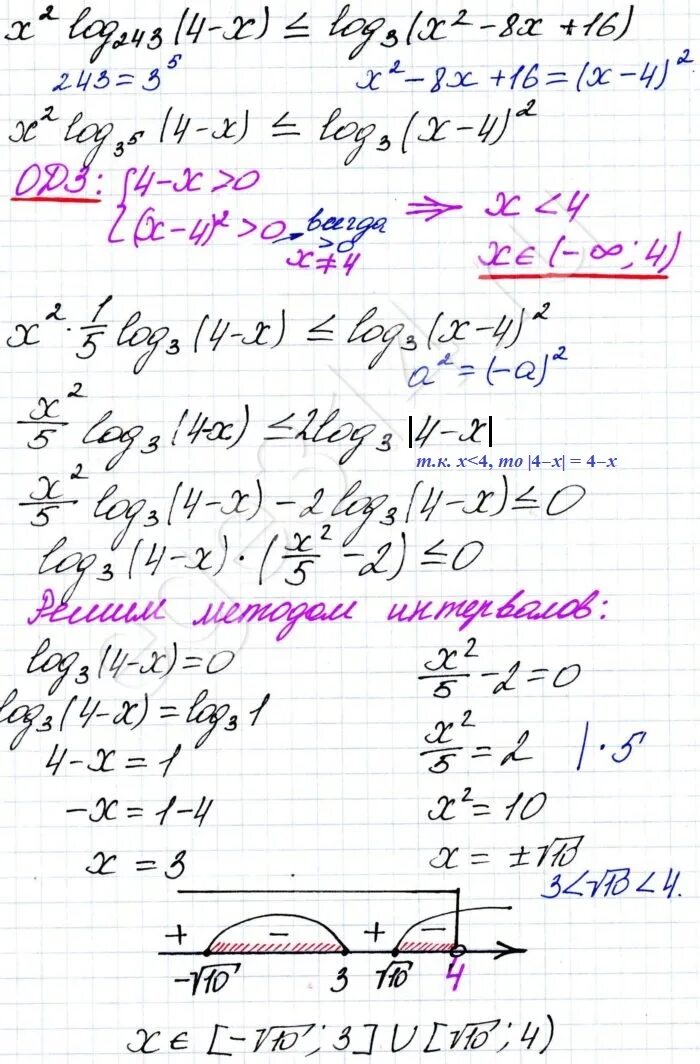 x² log₂₄₃(4-x) ≤ log₃(x²-8x+16)
243 = 3⁵ x²-8x+16 = (x-4)²
x² log₃⁵(4-x) ≤ log₃(x-4)²
ОДЗ: { 4-x>0
(x-4)²>0 → всегда >0 x≠4 ⇒ x<4
x∈(-∞; 4)
x² · 1/5 log₃(4-x) ≤ log₃(x-4)²
a² = (-a)²
x²/5 log₃(4-x) ≤ 2log₃ |4-x|
т.к. x<4, то |4–x| = 4–x
x²/5 log₃(4-x) - 2log₃(4-x) ≤ 0
log₃(4-x) · (x²/5 - 2) ≤ 0
Решим методом интервалов:
log₃(4-x) = 0
log₃(4-x) = log₃1
4-x = 1
-x = 1-4
x = 3
x²/5 - 2 = 0
x²/5 = 2 | · 5
x² = 10
x = ±√10
3<√10<4.
+ - + -
-√10 3 √10 4
x ∈ [-√10; 3] ∪ [√10; 4)